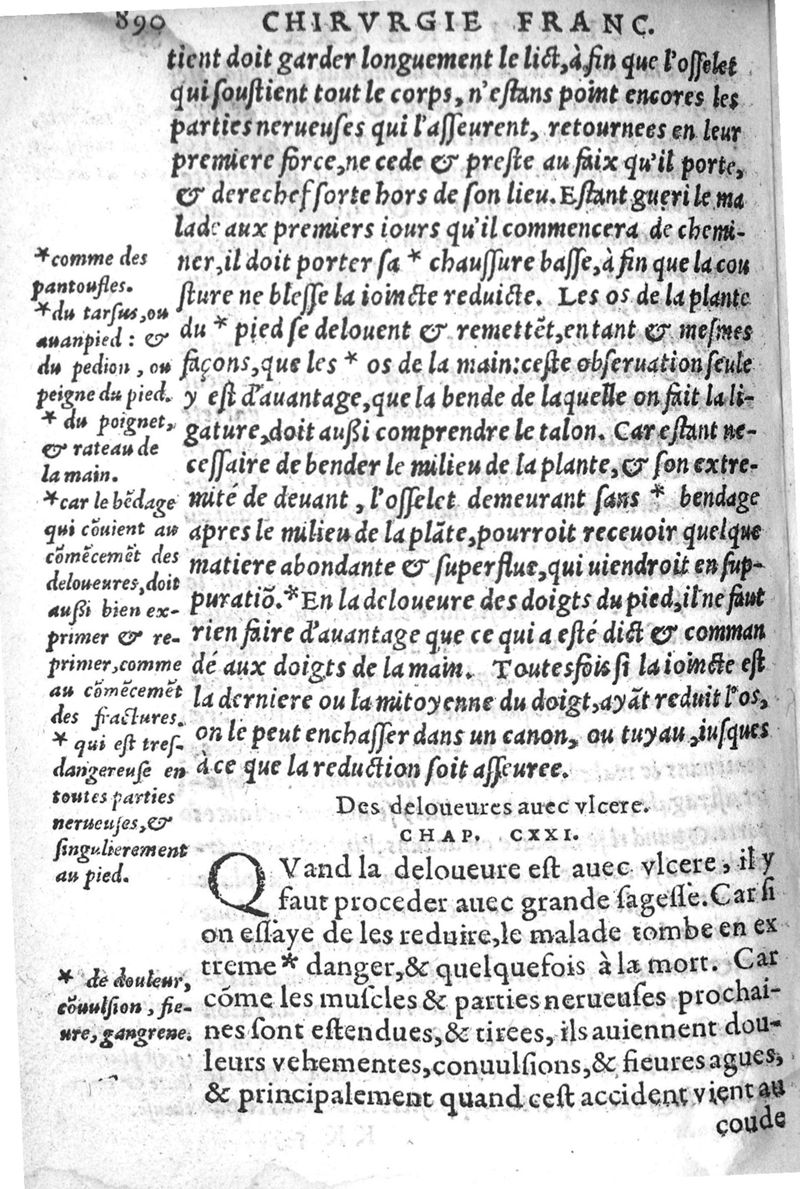 890 CHIRVRGIE FRANC.
tient doit garder longuement le lict, à fin que l'osselet
qui soustient tout le corps, n'estans point encores les
parties nerueuses qui l'asseurent, retournees en leur
premiere force, ne cede & preste au faix qu'il porte,
& derechef sorte hors de son lieu. Estant gueri le ma
lade aux premiers iours qu'il commencera de chemi-
ner, il doit porter sa * chaussure basse, à fin que la cou
sture ne blesse la ioincte reduicte. Les os de la plante
du * pied se delouent & remettẽt, en tant & mesmes
façons, que les * os de la main: ceste obseruation seule
y est d'auantage, que la bende de laquelle on fait la li-
gature, doit aussi comprendre le talon. Car estant ne-
cessaire de bender le milieu de la plante, & son extre-
mité de deuant, l'osselet demeurant sans * bendage
apres le milieu de la plãte, pourroit receuoir quelque
matiere abondante & superflue, qui uiendroit en sup-
puratiõ. * En la deloueure des doigts du pied, il ne faut
rien faire d'auantage que ce qui a esté dict & comman
dé aux doigts de la main. Toutesfois si la ioincte est
la derniere ou la mitoyenne du doigt, ayãt reduit l'os,
on le peut enchasser dans un canon, ou tuyau, iusques
à ce que la reduction soit asseuree.
*comme des
pantoufles.
*du tarsus, ou
auanpied: &
du pedion, ou
peigne du pied.
* du poignet,
& rateau de
la main.
*car le bẽdage
qui cõuient au
cõmẽcemẽt des
deloueures, doit
aussi bien ex-
primer & re-
primer, comme
au cõmẽcemẽt
des fractures.
* qui est tres-
dangereuse en
toutes parties
nerueuses, &
singulierement
au pied.
Des deloueures auec vlcere.
CHAP. CXXI.
QVand la deloueure est auec vlcere, il y
faut proceder auec grande sagesse. Car si
on essaye de les reduire, le malade tombe en ex
treme * danger, & quelquefois à la mort. Car
cõme les muscles & parties nerueuses prochai-
nes sont estendues, & tirees, ils auiennent dou-
leurs vehementes, conuulsions, & fieures agues,
& principalement quand cest accident vient au
coude
* de douleur,
cõuulsion, fie-
ure, gangrene.